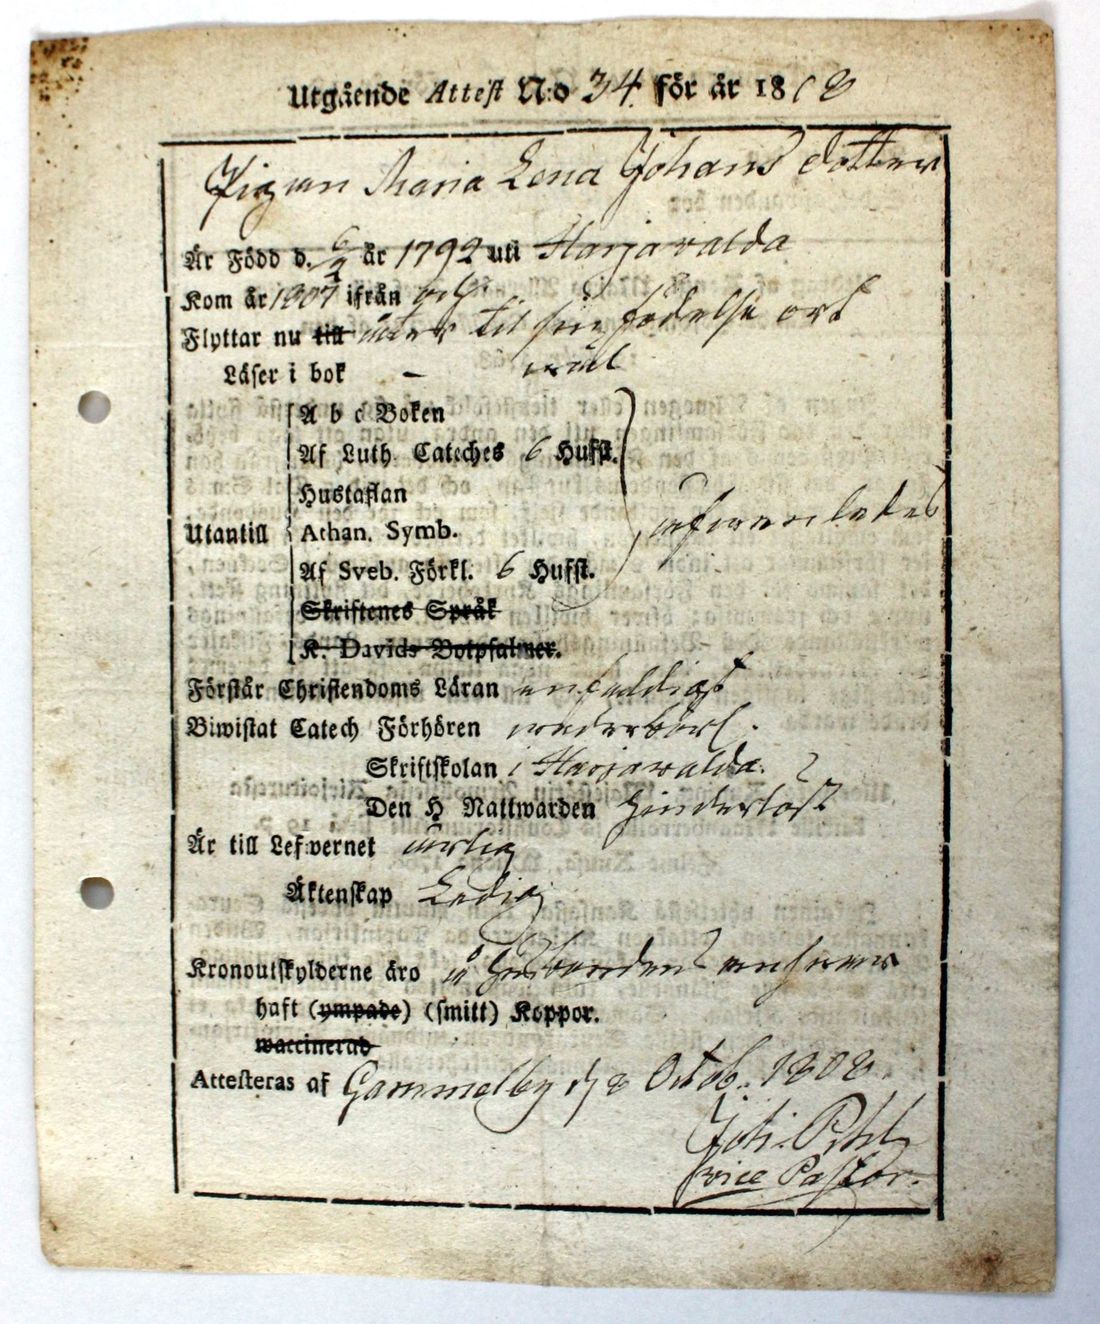 Utgående Attest N:o 34. för år 1808
Pigan Maria Lena Johans dotter
Är Född d. 6/2 år 1792 uti Harjawalda
Kom år 1807 ifrån och
Flyttar nu till åter til sin födelse ort
Läser i bok - wäl
A b c Boken
Af Luth. Cateches 6 Hufst.
Hustaflan
Utantill Athan. Symb.
Af Sveb. Förkl. 6 Hufst.
Skriftenes Språk
K. Davids Botpsalmer.
Förstår Christendoms Läran enfaldigt
Biwistat Catech Förhören wederbörl.
Skriftskolan i Harjawalda.
Den H Nattwarden hinderlöst
Är till Lefvernet ärlig
Äktenskap Ledig
Kronoutskylderne äro å husbondens answar
haft (ympade) (smitt) Koppor.
waccinerad
Attesteras af Gammelby d. 8 Octob. 1808.
Joh. Pihl
vice Pastor.